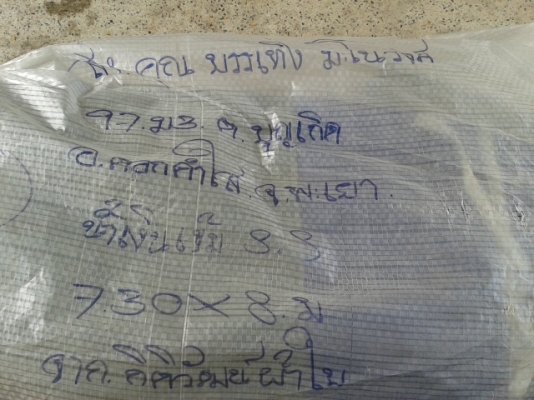 ส่ง. คุณ บรรเทิง มโนวงค์
97. ม 3. ต. บุญเกิด
อ. ดอกคำใต้. จ. พะเยา.
น้ำเงินเข้ม 3.3
7.30 × 8. ม
จาก. กิติวัฒน์ผ้าใบ